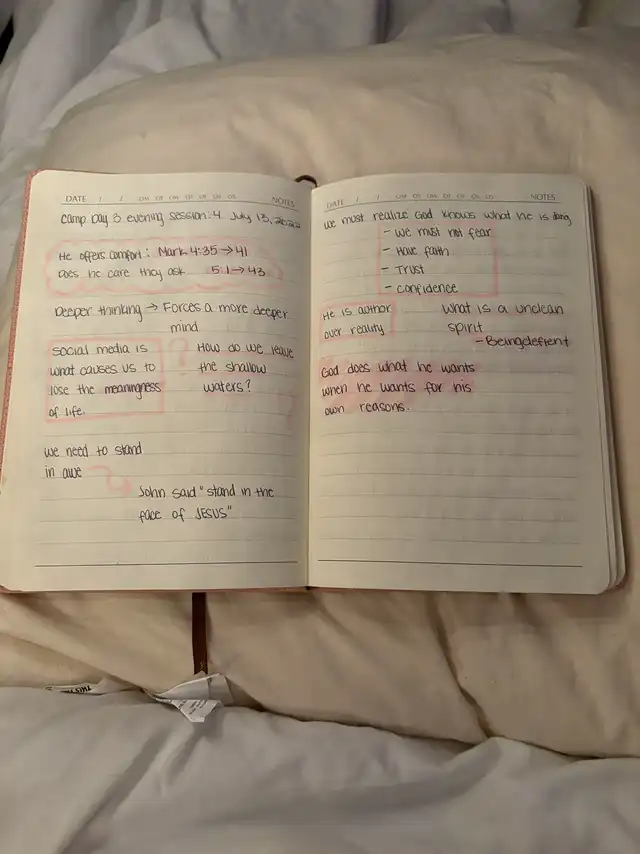 DATE / / NOTES
camp Day 3 evening session: 4 July 13, 2022
He offers comfort: Mark 4:35 → 41
Does he care they ask 5:1 → 43
Deeper thinking → Forces a more deeper
mind
social media is
what causes us to
lose the meaningness
of life.
? How do we leave
the shallow
waters?
we need to stand
in awe
John said "stand in the
face of JESUS"
DATE / / NOTES
we must realize God knows what he is doing
- we must not fear
- Have faith
- Trust
- confidence
He is author
over reality
what is a unclean
spirit
- Being defient
God does what he wants
when he wants for his
own reasons.